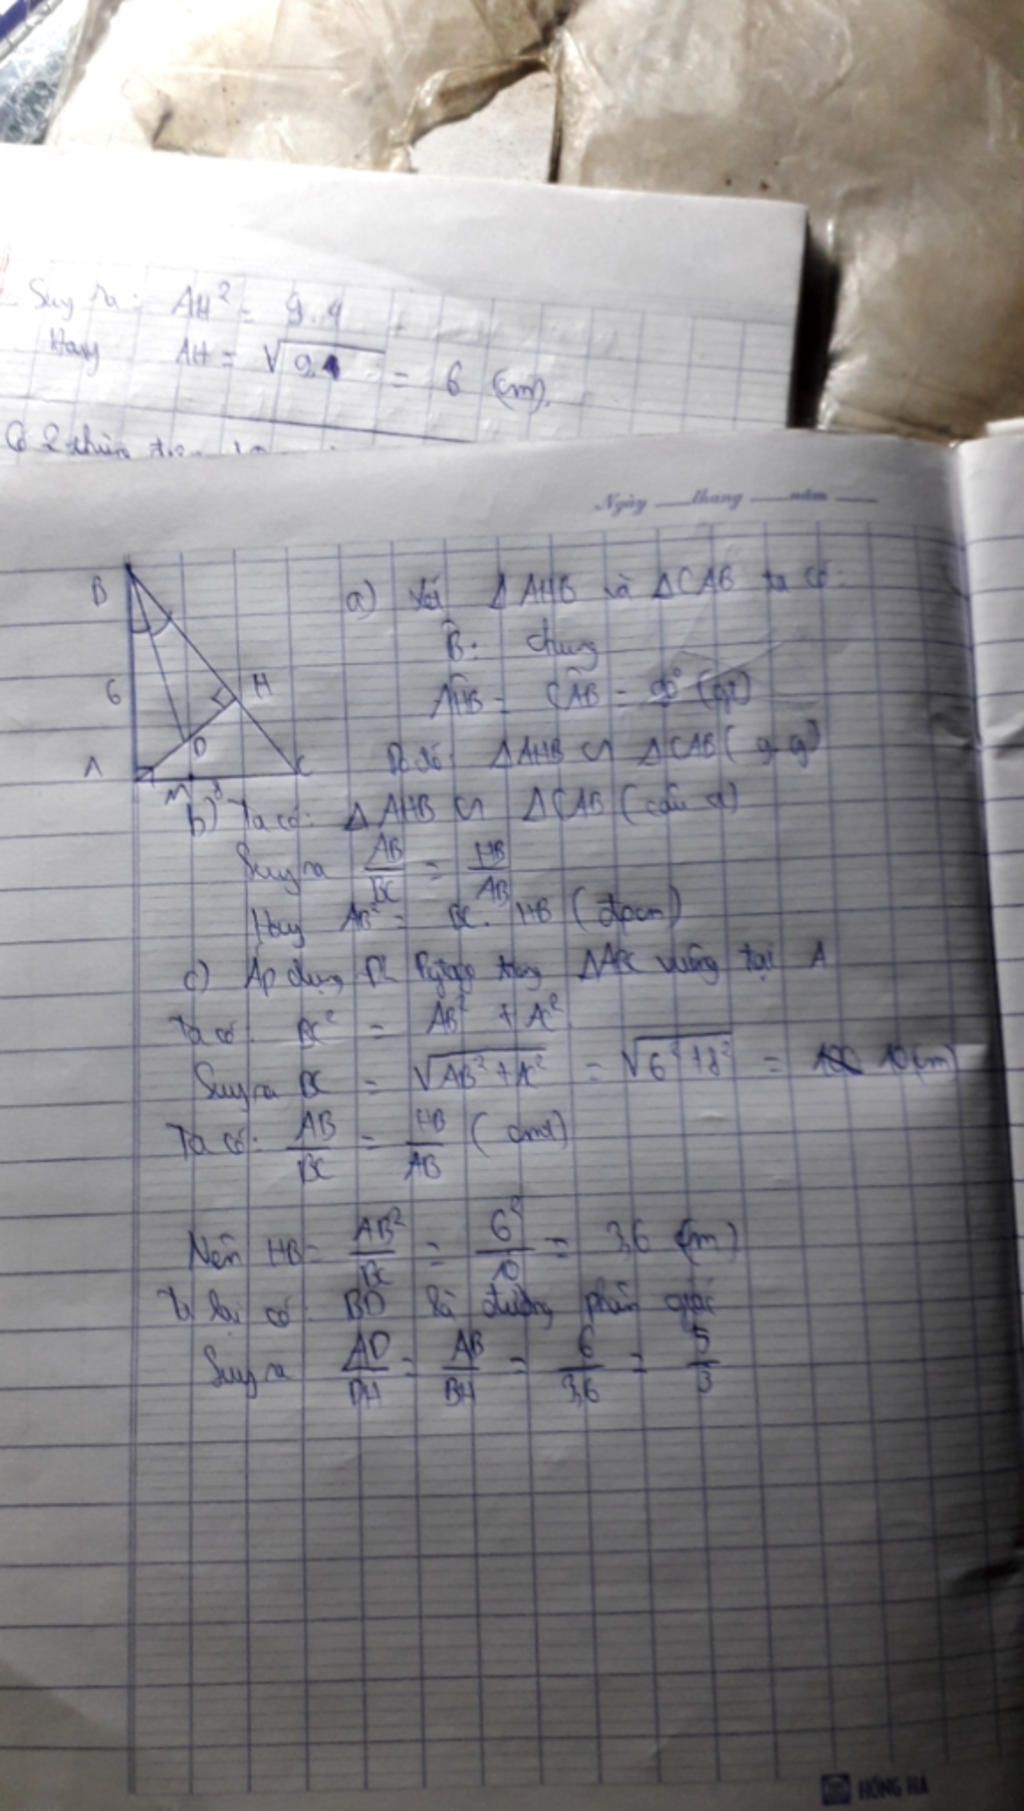 Suy ra: AH² = 9.4
Hay AH = √9.4 = 6 (cm).
Có 2 thùng
Ngày tháng năm
B
6
H
D
A
M
8
C
a) Xét ΔAHB và ΔCAB ta có:
B̂: chung
AĤB = CÂB = 90° (gt)
Do đó: ΔAHB ∽ ΔCAB (g.g)
b) Ta có: ΔAHB ∽ ΔCAB (câu a)
Suy ra AB/BC = HB/AB
Hay AB² = BC.HB (đpcm)
c) Áp dụng ĐL Pytago trong ΔABC vuông tại A
Ta có: BC² = AB² + AC²
Suy ra BC = √AB²+AC² = √6²+8² = 10 (cm)
Ta có: AB/BC = HB/AB (cmt)
Nên HB = AB²/BC = 6²/10 = 3,6 (cm)
Ta lại có: BD là đường phân giác
Suy ra AD/DH = AB/BH = 6/3,6 = 5/3
HỒNG HÀ